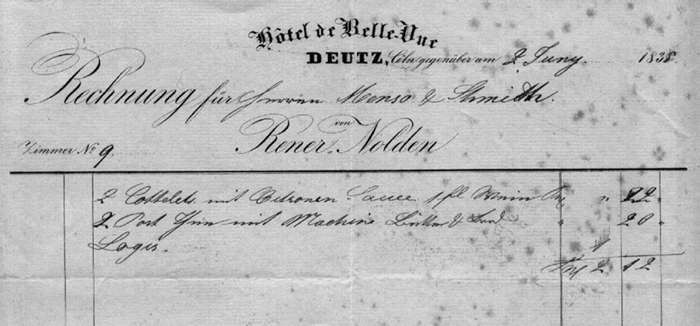 Hôtel de Belle-Vue
DEUTZ, Cöln gegenüber am 2 Juny 183
Rechnung für Herren Menso & Schmidt.
von
Rener Nolden
Zimmer No 9.
2 Cottelets mit Citronen Sauce 1 fl Wein " 22
2 Port mit & " 20
Logis. 1
2 12